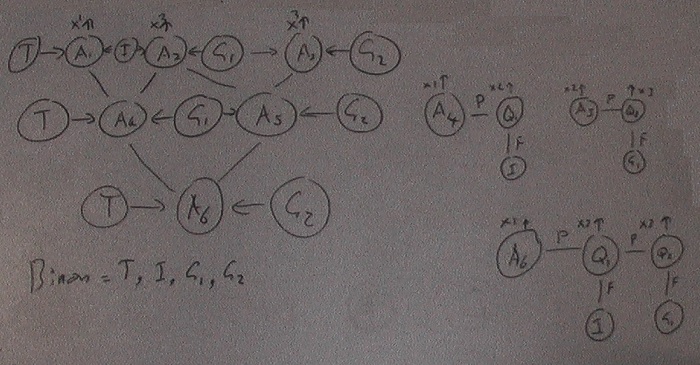 x1↑ x3↑ x3↑
T → A1 ← I → A2 ← G1 → A3 ← G2
T → A4 ← G1 → A5 ← G2
T → A6 ← G2
Binars = T, I, G1, G2
x1↑ x2↑
A4 P Q1
F
I
x2↑ ↑x3
A5 P Q2
F
G1
x1↑ x2↑ x3↑
A6 P Q1 P Q2
F F
I G1